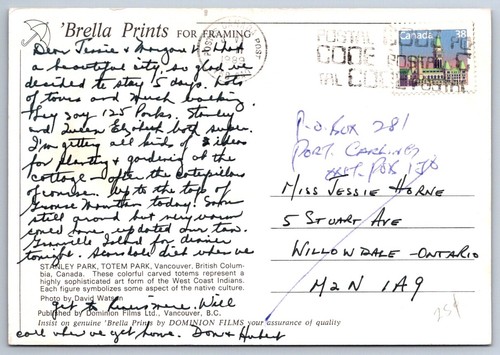 'Brella Prints FOR FRAMING
Dear Jessie & Margaret. What
a beautiful city, so glad we
decided to stay 5 days. Lots
of tours and much walking.
They say 125 Parks. Stanley
and Queen Elizabeth both super.
I'm getting all kinds of ideas
for planting & gardening at the
cottage - after the caterpillars
of course. Up to the top of
Grouse Mountain today. Some
still around but very warm
and have updated our tans.
Granville Island for dinner
tonight. diet when we
STANLEY PARK, TOTEM PARK, Vancouver, British Colum-
bia, Canada. These colorful carved totems represent a
highly sophisticated art form of the West Coast Indians.
Each figure symbolizes some aspect of the native culture.
Photo by David Watson
Published by Dominion Films Ltd., Vancouver, B.C.
get to Will
Insist on genuine 'Brella Prints by DOMINION FILMS your assurance of quality
call when we get home. Don & Hubert
1989
POSTAL CODE
Canada 38
P.O. BOX 281
PORT CARLING
ONT. P0B 1J0
MISS JESSIE HORNE
5 STUART AVE
WILLOWDALE - ONTARIO
M2N 1A9
25¢